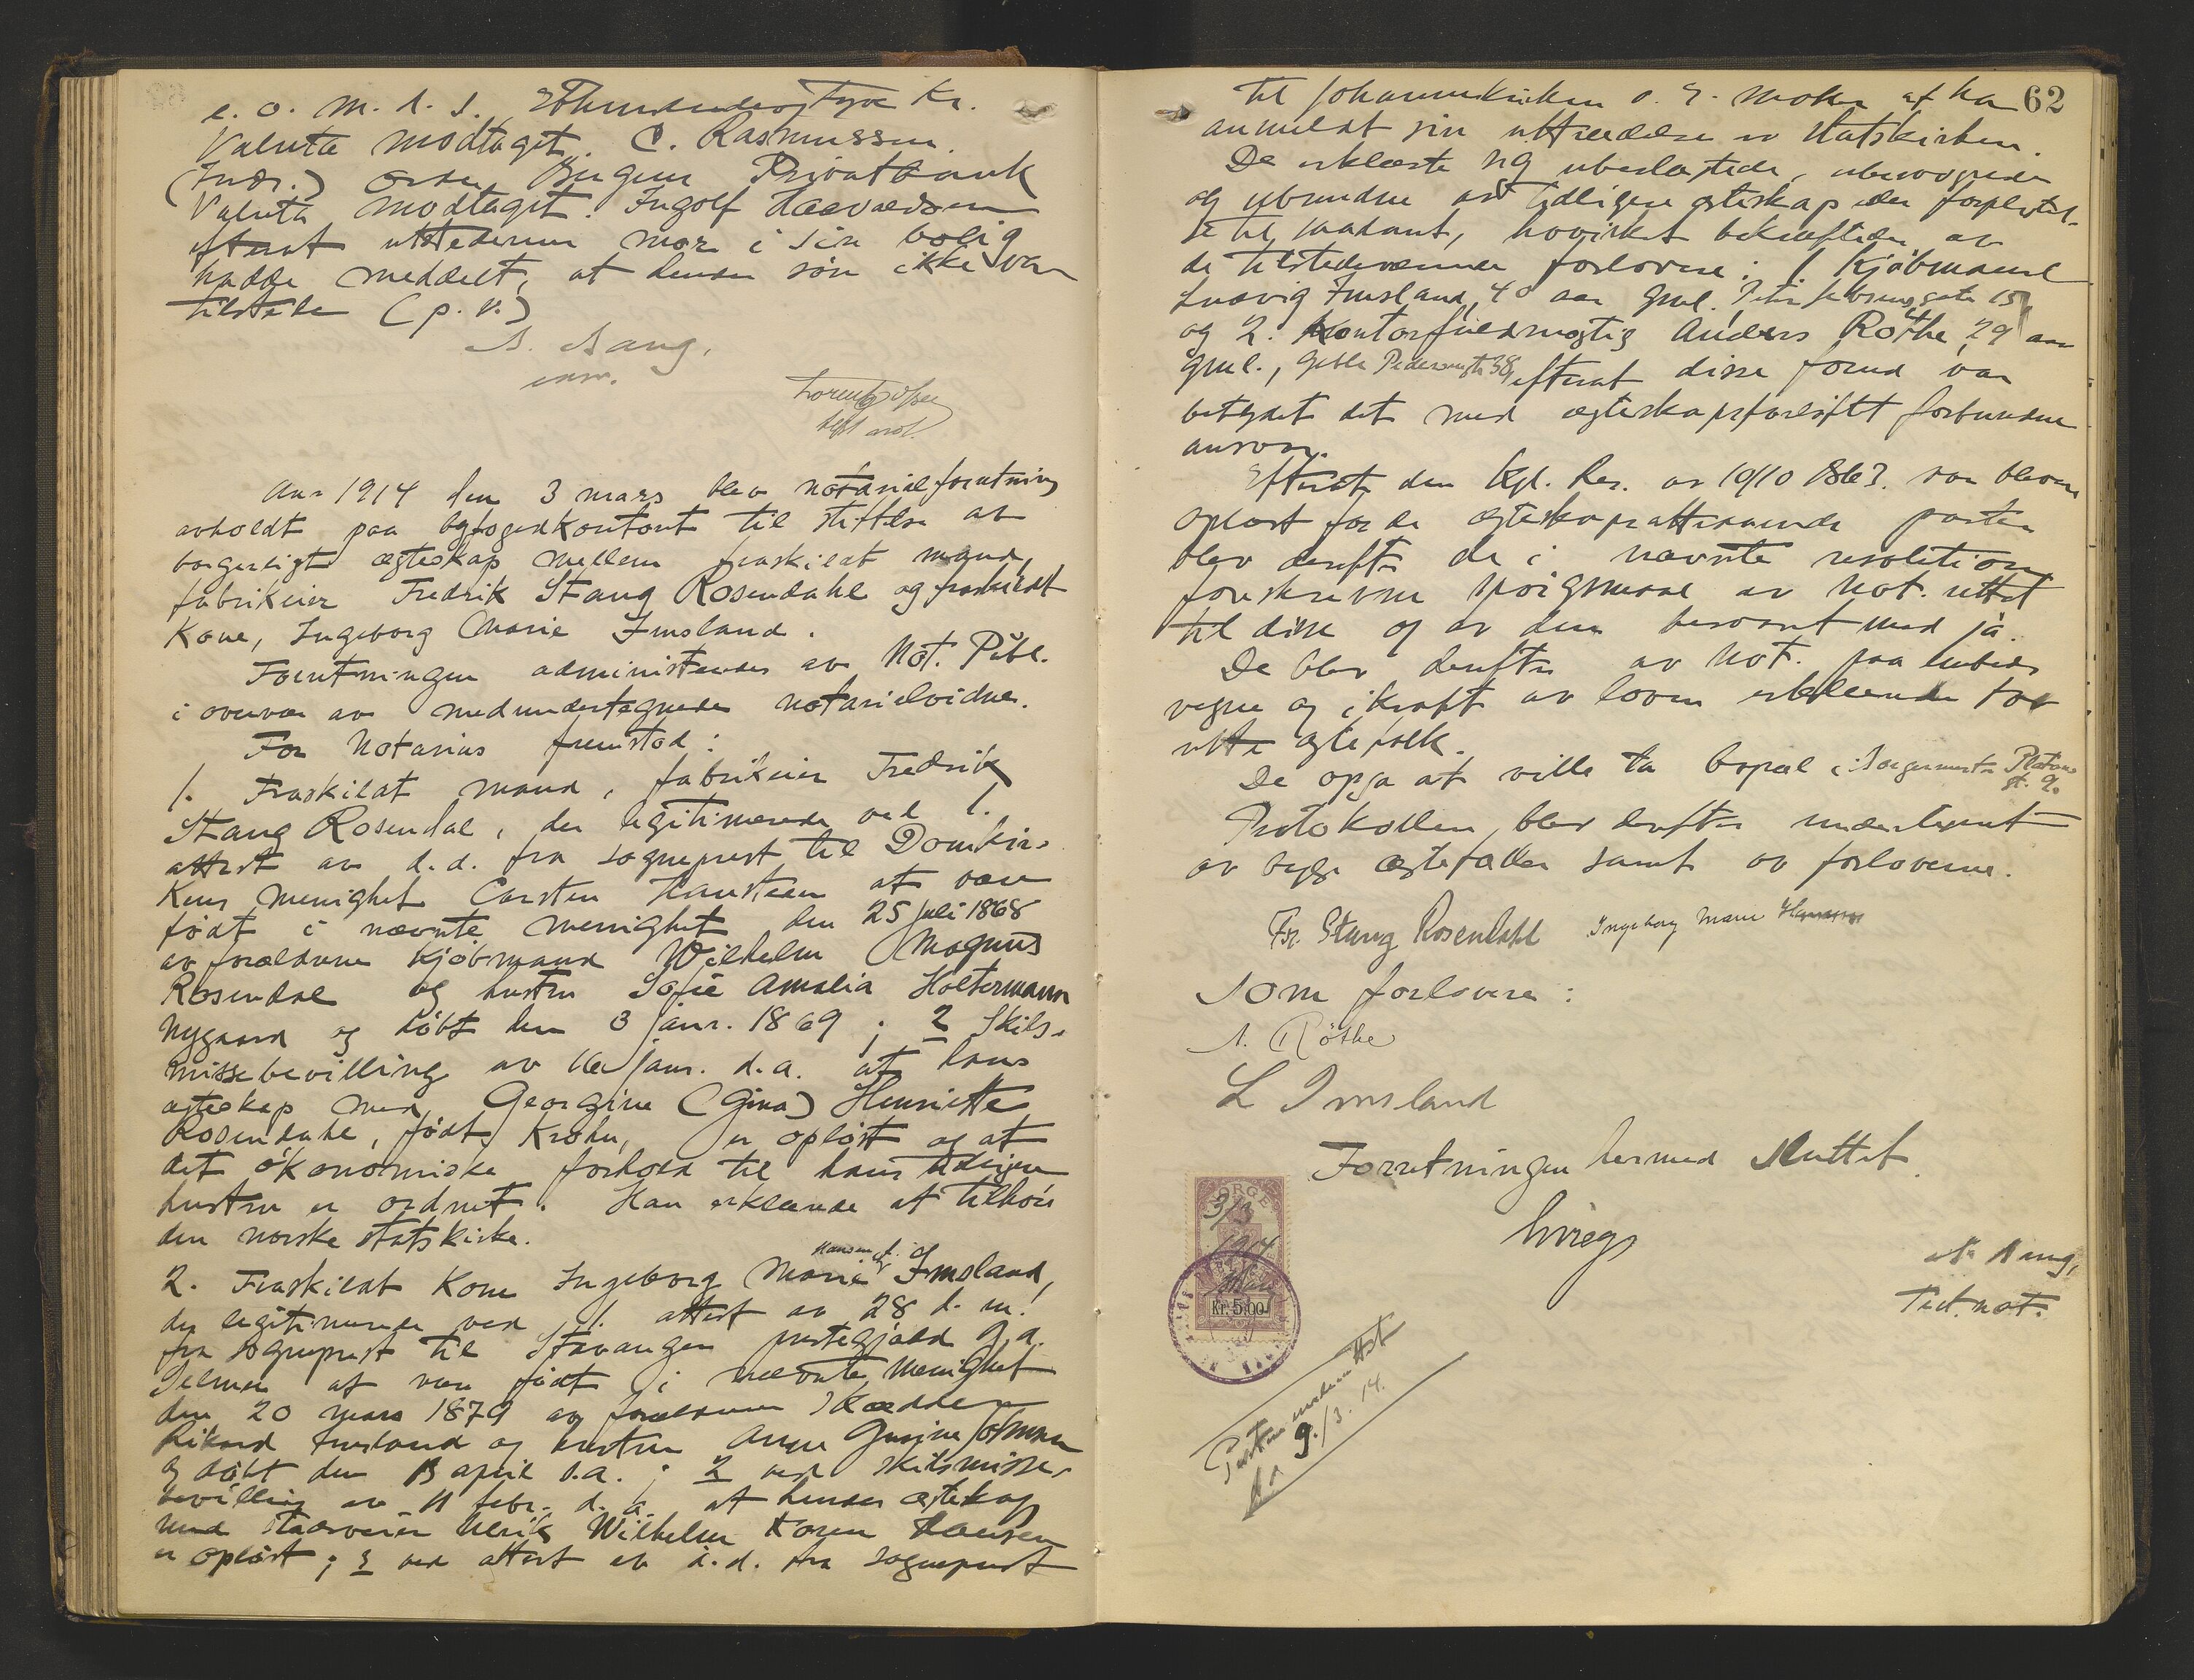 e. o. m. d. s. Ethundredeogtyve Kr.
Valuta modtaget. C. Rasmussen.
(Indr.) ordre Bergens Privatbank
Valuta modtaget. Ingolf Haavardsen
efterat utstederens mor i sin bolig
hadde meddelt, at hendes søn ikke var
tilstede (p. v.)
N. Aang.
Aar 1914 den 3 mars blev notarialforretning
avholdt paa byfogedkontoret til stiftelse av
borgerligt ægteskap mellem fraskilt mand,
fabrikeier Fredrik Stang Rosendahl og fraskilt
Kone, Ingeborg Marie Imsland.
Forretningen administreres av Not. Publ.
i overvær av medundertegnede notarialvidne.
For Notarius fremstod:
1. Fraskilat mand, fabrikeier Fredrik
Stang Rosendal, der legitimerede ved 1.
attest av d.d. fra sogneprest til Domkir-
kens menighet Carsten Hansteen at være
født i nævnte menighet den 25 juli 1868
av forældrene Kjøbmand Wilhelm Magnus
Rosendal og hustru Sofie Amalia Holtermann
Nygaard og døbt den 3 janr. 1869; 2 Skils-
missebevilling av 16 janr. d.a. at hans
ægteskap med Georgine (Gina) Henriette
Rosendahl, født Krohn, er opløst og at
det økonomiske forhold til hans tidligere
hustru er ordnet. Han erklærede at tilhøre
den norske statskirke.
Hansen f.
2. Fraskilat Kone Ingeborg Marie Imsland,
der legitimerede ved 1. attest av 28 d. m.
fra sogneprest til Stavanger prestegjæld G. A.
Selmer at være født i nævnte menighet
den 20 mars 1879 av forældrene Skrædder
Rikard Imsland og hustru Anne Gurine
og døbt den 13 april s.a.; 2 ved skilsmisse-
bevilling av 11 febr. d. a. at hendes ægteskap
med Ulrik Wilhelm Koren Hansen
er opløst; 3 ved attest av d.d. fra sogneprest
62
til Johanneskirken o. s. v. at ha
anmeldt sin uttrædelse av statskirken.
De erklærte sig ubeslægtede, ubesvogrede
og ubundne av tidligere ægteskap eller forpligtel-
se til saadant, hvilket bekræftedes av
de tilstedeværende forlovere: 1 Kjøbmand
Ludvig Imsland, 40 aar gml. Peter 15,
og 2. Kontorfuldmægtig Anders Røthe, 29 aar
gml., Gable Pedersensgt. 38, efterat disse forud var
betydet det med ægteskapsforløftet forbundne
ansvar.
Efterat den Kgl. Res. av 10/10 1863 var bleven
oplæst for de ægteskapsattraaende parter
blev derefter de i nævnte resolution
foreskrevne spørgsmaal av Not. rettet
til disse og av dem besvaret med ja.
De blev derefter av Not. paa embeds
vegne og i kraft av loven erklærede for
rette ægtefolk.
De opga at ville ta bopæl i Borgermester Platous
gt. 9.
Protokollen blev derefter underskrevet
av begge ægtefæller samt av forloverne.
Fr. Stang Rosendahl Ingeborg Marie Hansen
Som forlovere:
A. Røthe
L Imsland
Forretningen hermed sluttet.
NORGE
3/3
1914
Kr. 5.00
Kriegs
N. Aang,
Test. not.
9/3. 14.